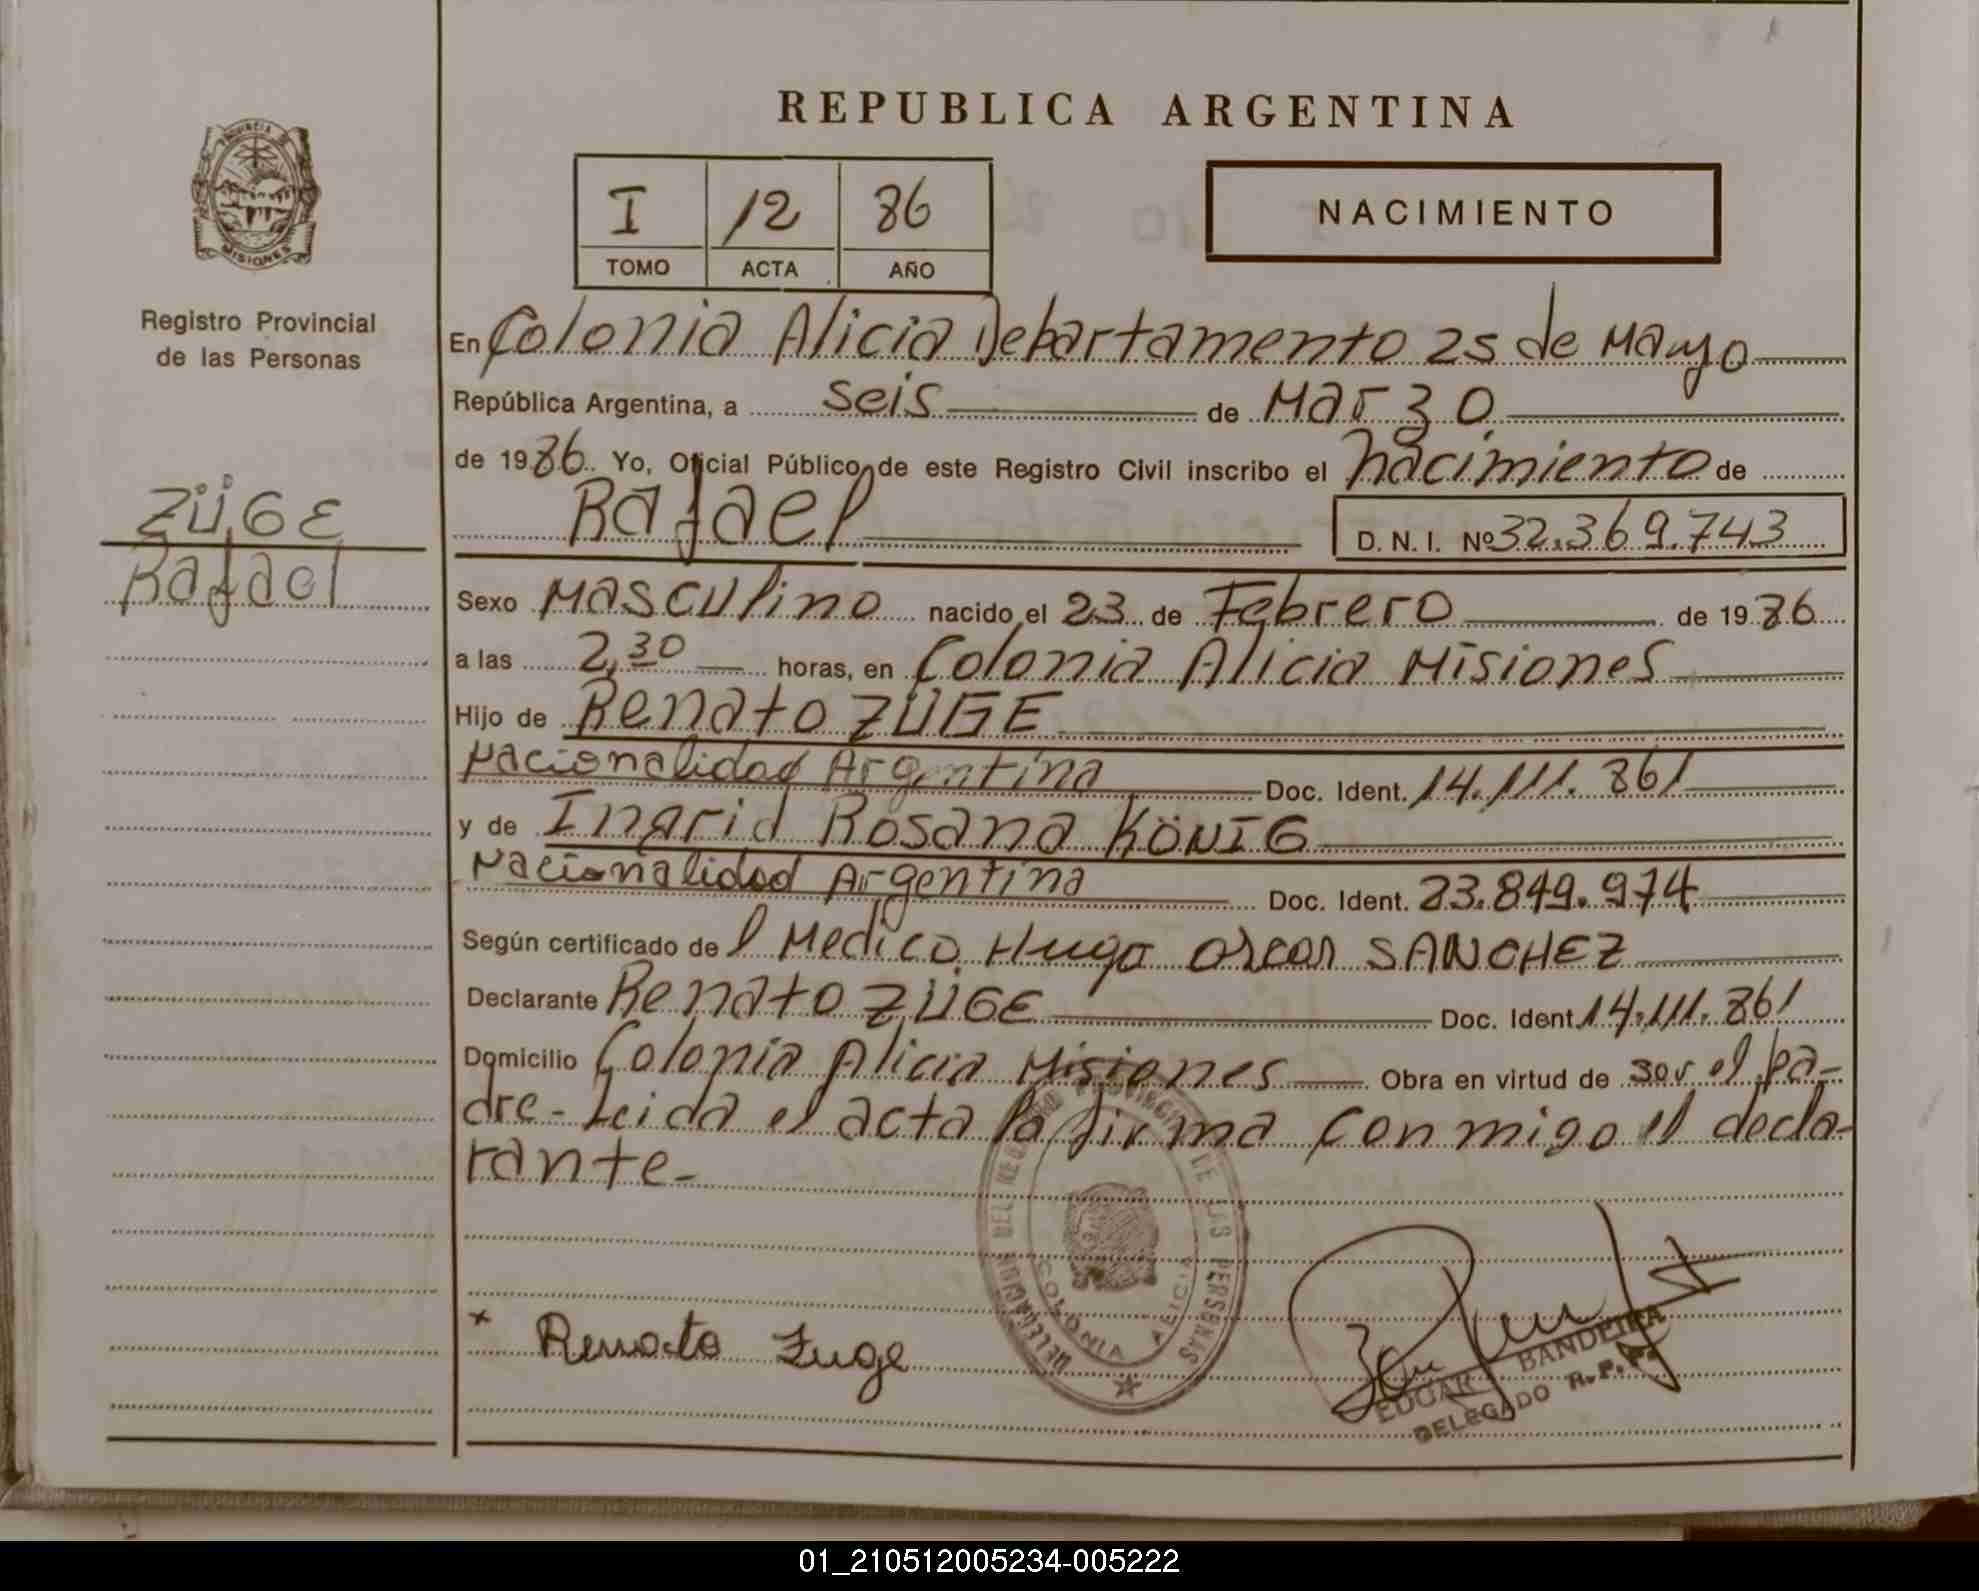 REPUBLICA ARGENTINA
PROVINCIA
MISIONES
I 12 86
TOMO ACTA AÑO
NACIMIENTO
Registro Provincial
de las Personas
ZÜGE
Rafael
En Colonia Alicia Departamento 25 de Mayo
República Argentina, a seis de Marzo
de 1986. Yo, Oficial Público de este Registro Civil inscribo el nacimiento de
Rafael
D. N. I. Nº 32.369.743
Sexo Masculino nacido el 23 de Febrero de 1986
a las 2,30 horas, en Colonia Alicia Misiones
Hijo de Renato ZÜGE
Nacionalidad Argentina Doc. Ident. 14.111.861
y de Ingrid Rosana KÖNIG
Nacionalidad Argentina Doc. Ident. 23.849.974
Según certificado del Medico Hugo Oscar SANCHEZ
Declarante Renato ZÜGE Doc. Ident. 14.111.861
Domicilio Colonia Alicia Misiones Obra en virtud de ser el pa-
dre- Leida el acta la firma conmigo el decla-
rante-
DELEGACION DEL REGISTRO PROVINCIAL DE LAS PERSONAS
COLONIA ALICIA
x Renato Zuge
EDGAR BANDEIRA
DELEGADO R.P.P.
01_210512005234-005222